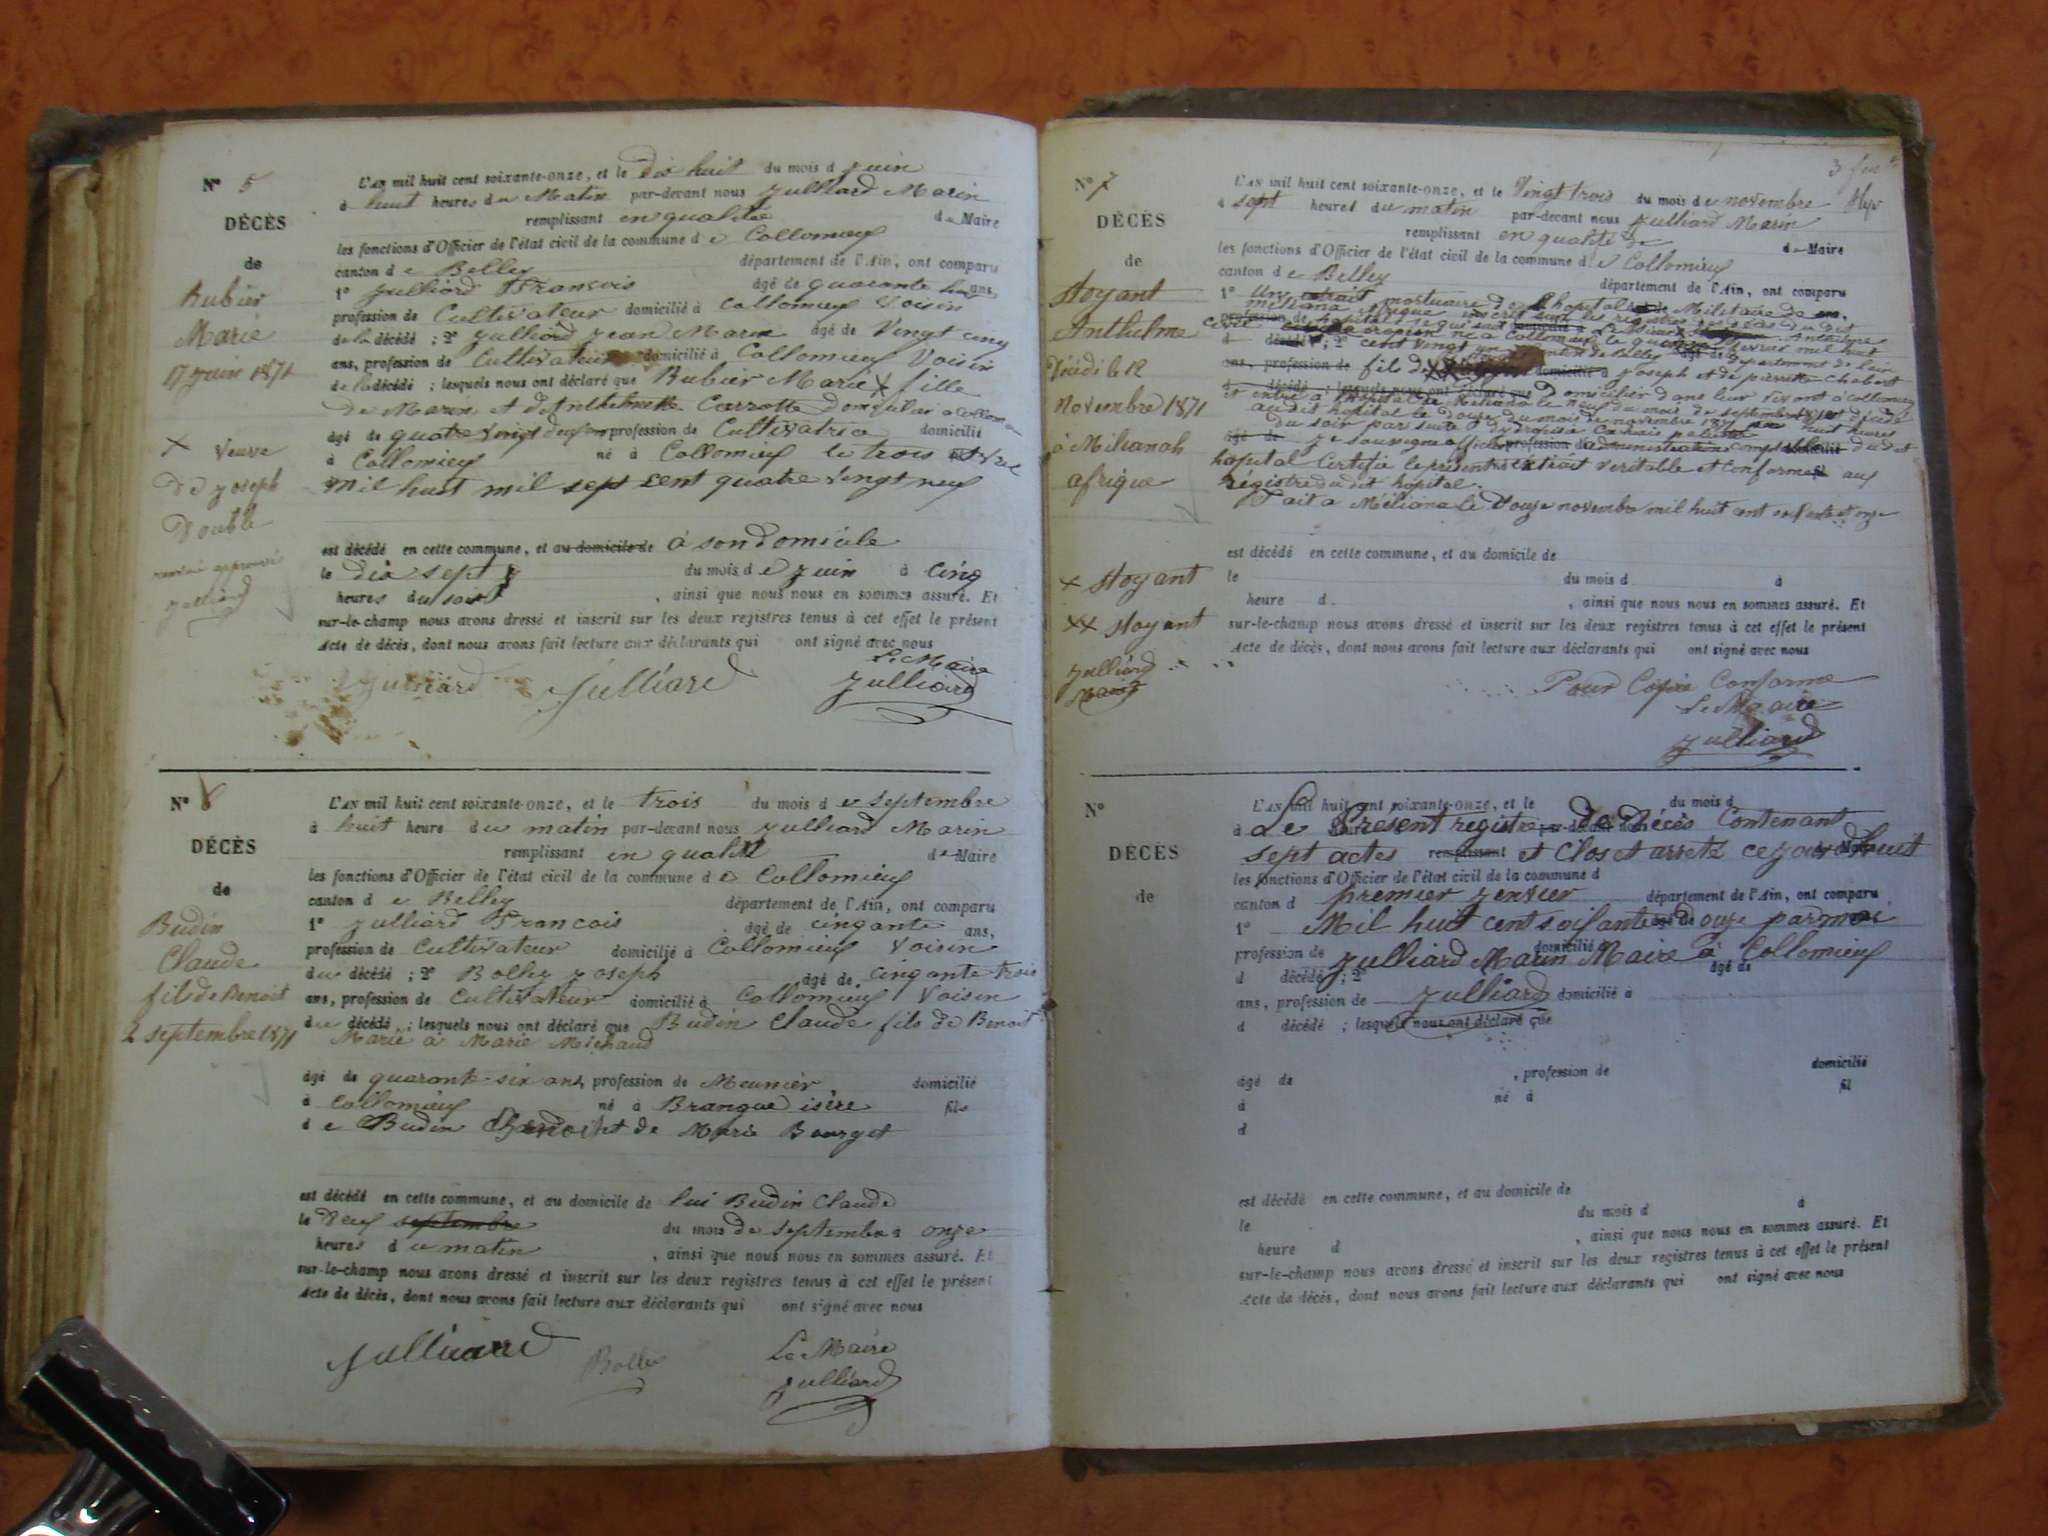 N° 5
DÉCÈS
de
Rubier
Marie
17 juin 1871
+ Veuve
de joseph
Double
julliard
L'AN mil huit cent soixante-onze, et le dix huit du mois d juin
à huit heures du Matin par-devant nous julliard Marin
remplissant en qualité de Maire
les fonctions d'Officier de l'état civil de la commune d e Collomieu
canton d e Belley département de l'Ain, ont comparu
1° julliard François âgé de quarante ans,
profession de Cultivateur domicilié à Collomieu Voisin
de la décédé ; 2° julliard jean Marie âgé de Vingt cinq
ans, profession de Cultivateur domicilié à Collomieu Voisin
de la décédé ; lesquels nous ont déclaré que Rubier Marie + fille
de Marin et d'Anthelmette Carrotte Domiciliée à Collomieu
âgé de quatre vingt profession de Cultivatrice domicilié
à Collomieu né à Collomieu le trois
mil huit mil sept cent quatre vingt neuf
est décédé en cette commune, et au domicile de à son domicile
le dix sept du mois d e juin à cinq
heures du soir , ainsi que nous nous en sommes assuré. Et
sur-le-champ nous avons dressé et inscrit sur les deux registres tenus à cet effet le présent
Acte de décès, dont nous avons fait lecture aux déclarants qui ont signé avec nous
Le Maire
julliard julliard julliard
N° 6
DÉCÈS
de
Budin
Claude
fils de Benoit
2 septembre 1871
L'AN mil huit cent soixante-onze, et le trois du mois d e septembre
à huit heure du matin par-devant nous julliard Marin
remplissant en qualité de Maire
les fonctions d'Officier de l'état civil de la commune d e Collomieu
canton d e Belley département de l'Ain, ont comparu
1° julliard Francois âgé de cinquante ans,
profession de Cultivateur domicilié à Collomieu Voisin
du décédé ; 2° Bolley joseph âgé de cinquante trois
ans, profession de Cultivateur domicilié à Collomieu Voisin
du décédé ; lesquels nous ont déclaré que Budin Claude fils de Benoit
Marié à Marie Michaud
âgé de quarante-six ans profession de Meunier domicilié
à Collomieu né à Brangue isère fils
d e Budin Benoit et de Marie Bourget
est décédé en cette commune, et au domicile de lui Budin Claude
le deux septembre du mois de septembre à onze
heures du matin , ainsi que nous nous en sommes assuré. Et
sur-le-champ nous avons dressé et inscrit sur les deux registres tenus à cet effet le présent
Acte de décès, dont nous avons fait lecture aux déclarants qui ont signé avec nous
julliard Bolley Le Maire
julliard
N° 7
DÉCÈS
de
Hoyant
Anthelme
Décédé le 12
Novembre 1871
à Milianah
afrique
+ Hoyant
++ Hoyant
julliard
Maire
L'AN mil huit cent soixante-onze, et le Vingt trois du mois d e novembre
à sept heures du matin par-devant nous julliard Marin
remplissant en qualité de de Maire
les fonctions d'Officier de l'état civil de la commune d e Collomieu
canton d e Belley département de l'Ain, ont comparu
1° Un extrait mortuaire de l'hopital Militaire de
ans, profession de fils de joseph et de pierrette Chabert
au dit hopital le douze du mois de novembre 1871 huit heures
hopital Certifie le présent extrait véritable et conforme aux
régistre du dit hopital.
Fait à Méliana le Douze novembre mil huit cent soixante et onze
est décédé en cette commune, et au domicile de
le du mois d à
heure d , ainsi que nous nous en sommes assuré. Et
sur-le-champ nous avons dressé et inscrit sur les deux registres tenus à cet effet le présent
Acte de décès, dont nous avons fait lecture aux déclarants qui ont signé avec nous
Pour Copie Conforme
Le Maire
julliard
N°
DÉCÈS
de
L'AN mil huit cent soixante-onze, et le du mois d
à Le Présent registre de Décès Contenant
sept actes remplissant et Clos et arreté ce jourd'huit
les fonctions d'Officier de l'état civil de la commune d
canton d premier jenvier département de l'Ain, ont comparu
1° Mil huit cent soixante douze par moi
profession de julliard Marin Maire à Collomieu
d décédé ; 2° âgé de
ans, profession de julliard domicilié à
d décédé ; lesquels nous ont déclaré que
âgé de , profession de domicilié
à né à fil
d
est décédé en cette commune, et au domicile de
le du mois d à
heure d , ainsi que nous nous en sommes assuré. Et
sur-le-champ nous avons dressé et inscrit sur les deux registres tenus à cet effet le présent
Acte de décès, dont nous avons fait lecture aux déclarants qui ont signé avec nous